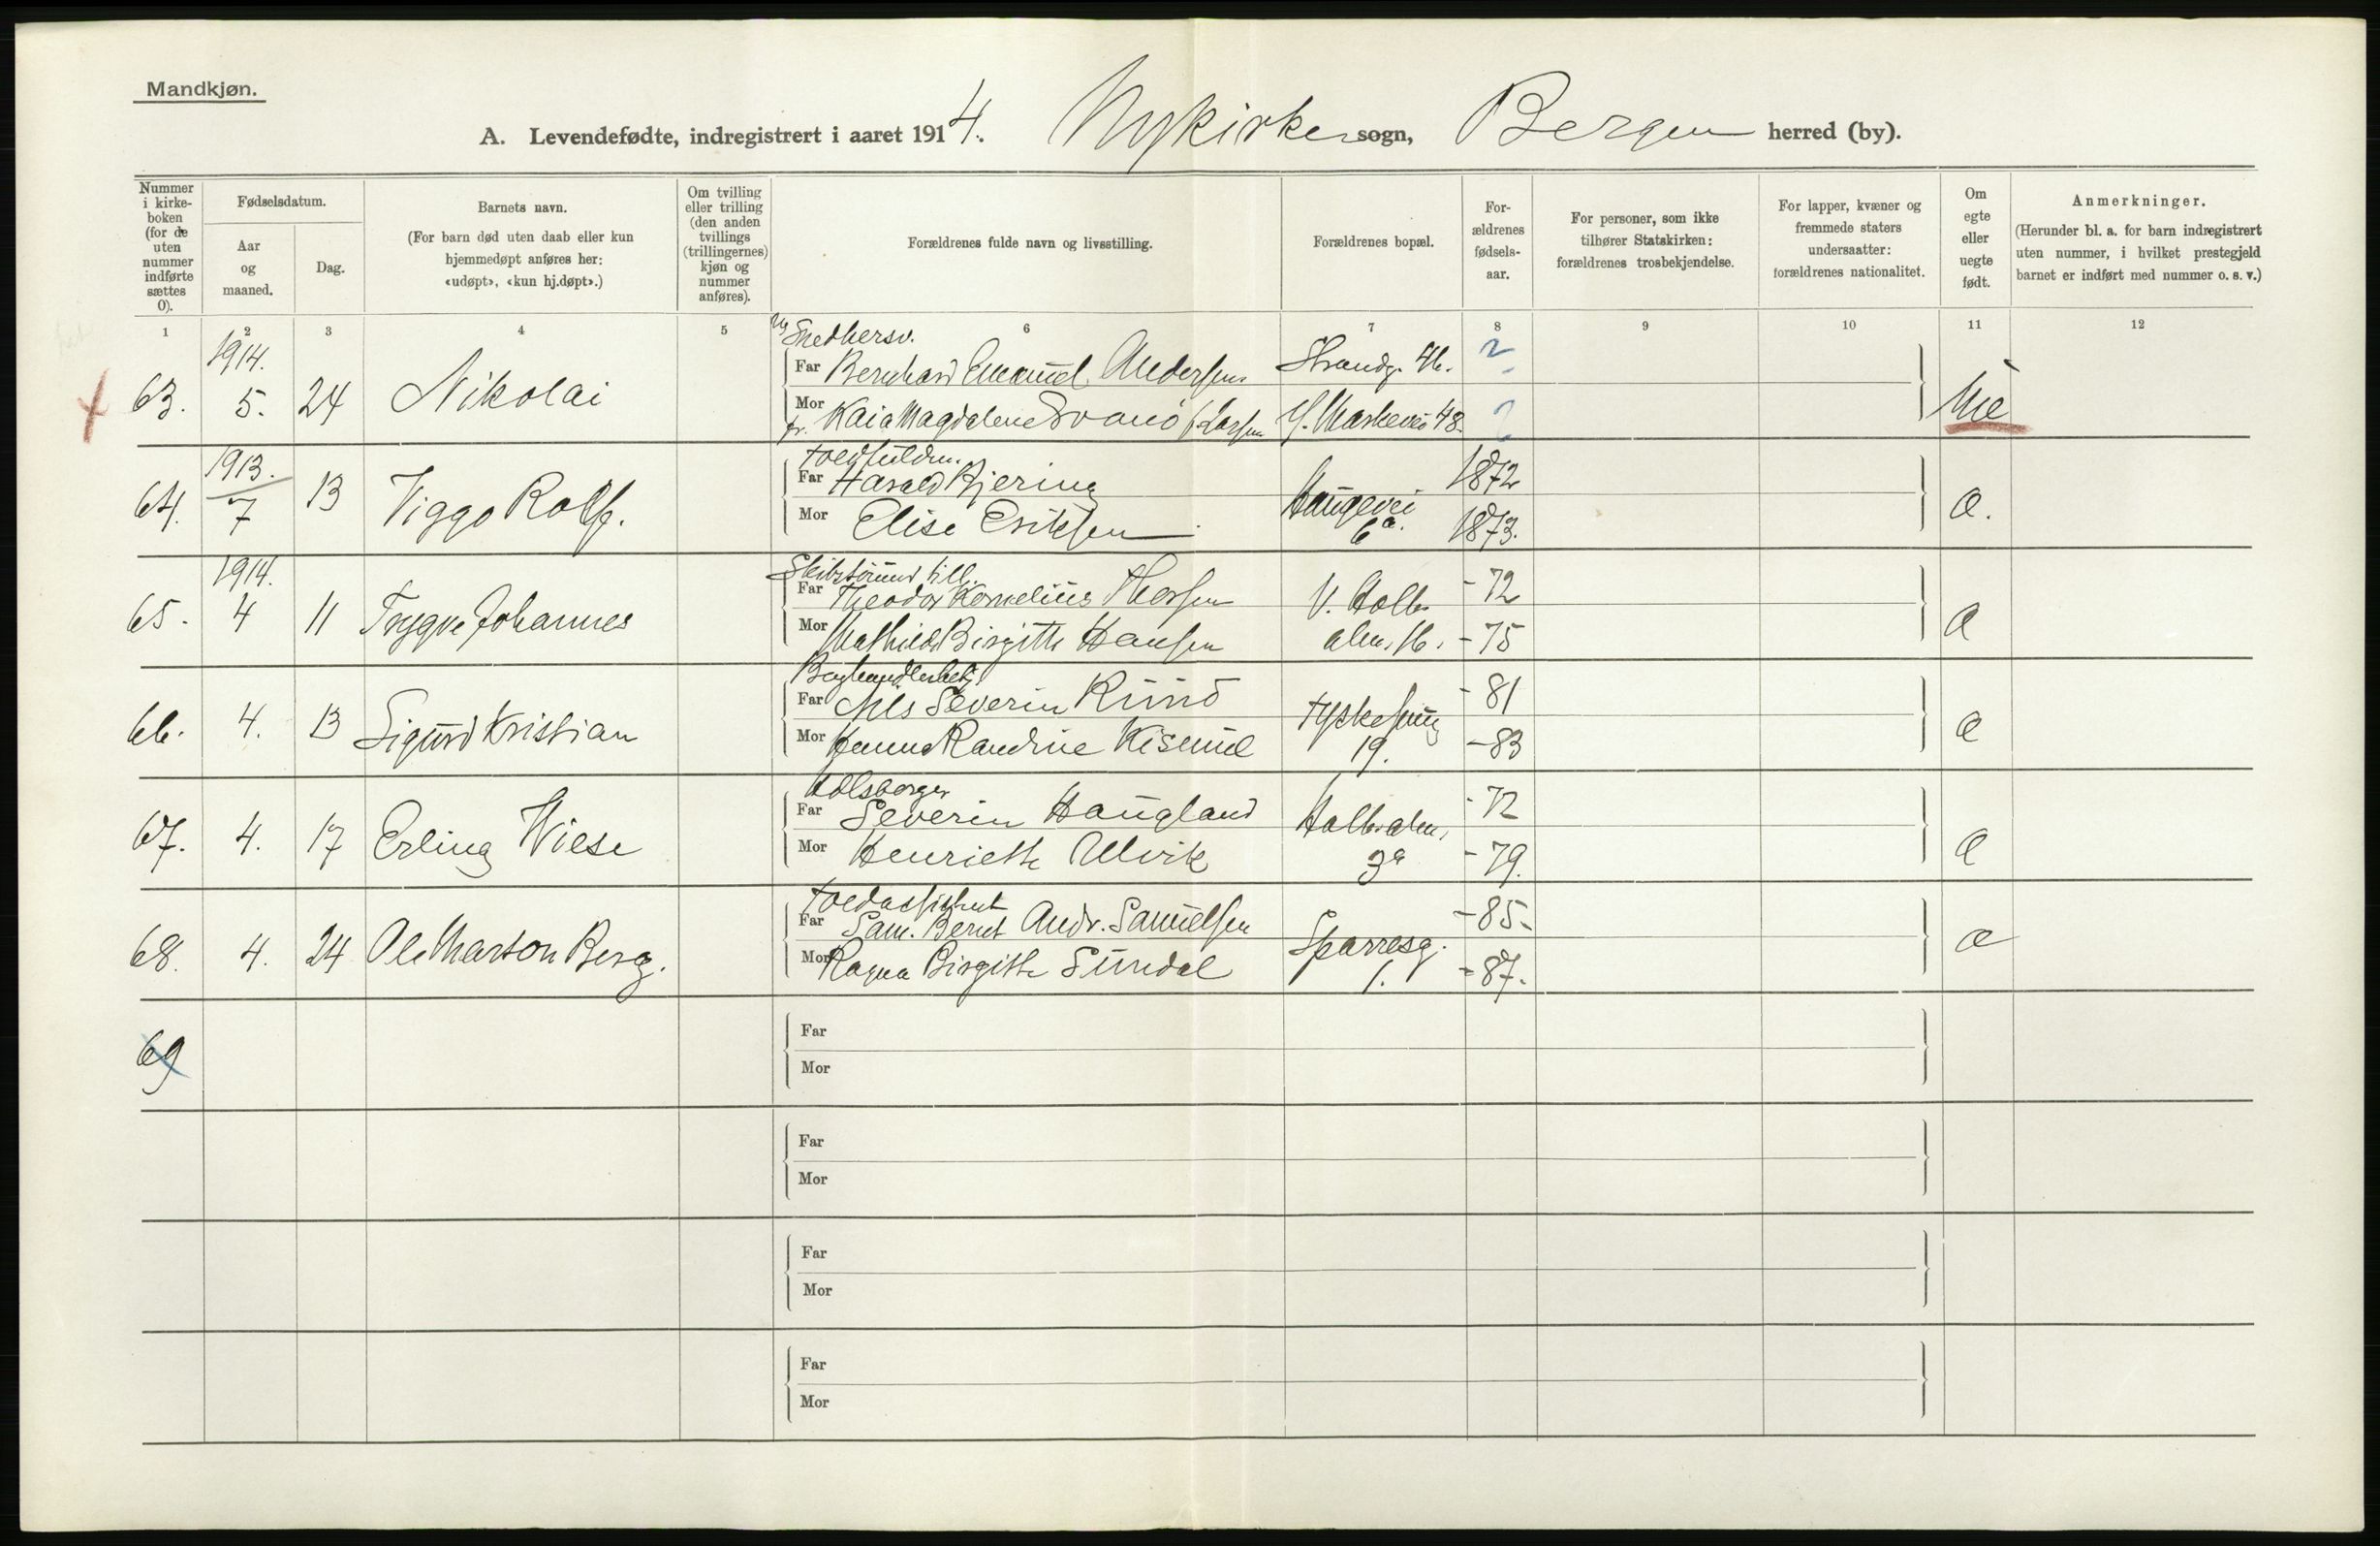 Mandkjøn.
A. Levendefødte, indregistrert i aaret 1914. Nykirke sogn, Bergen herred (by).
Nummer i kirke-boken (for de uten nummer indførte sættes 0).
Fødselsdatum.
Aar og maaned.
Dag.
Barnets navn.
(For barn død uten daab eller kun hjemmedøpt anføres her: «udøpt», «kun hj.døpt».)
Om tvilling eller trilling (den anden tvillings (trillingernes) kjøn og nummer anføres).
Forældrenes fulde navn og livsstilling.
Forældrenes bopæl.
For-ældrenes fødsels-aar.
For personer, som ikke tilhører Statskirken: forældrenes trosbekjendelse.
For lapper, kvæner og fremmede staters undersaatter: forældrenes nationalitet.
Om egte eller uegte født.
Anmerkninger.
(Herunder bl. a. for barn indregistrert uten nummer, i hvilket prestegjeld barnet er indført med nummer o. s. v.)
1 2 3 4 5 6 7 8 9 10 11 12
1914.
63. 5. 24 Nikolai
Snedkersv.
Far Bernhard Emanuel Andersen Strandg. ?
Mor Kaia Magdalene Svanø f. Larsen 48. ?
1913.
64. 7 13 Viggo Rolf.
Far Harald Bjering 1872
Mor Elise Eriksen Haugevei 6a. 1873. a.
1914.
65. 4 11 Trygve Johannes
Far Theodor Kornelius V. Holb. - 72
Mor Mathilde Birgitte Hansen alm. 16. - 75 a
66. 4. 13 Sigurd Kristian
Far Nils Severin - 81
Mor Hanna Randine 19. - 83 a
67. 4. 17 Erling Wiese
Far Severin Haugland Holb. alm. - 72
Mor Henriette Ulvik 3a - 79. a
68. 4. 24 Ole Marton Berg.
Toldassistent
Far Sam. Bernt Andr. Samuelsen Sparresg. - 85.
Mor Ragna Birgitte Sundal 1. - 87. a
69
Far
Mor
Far
Mor
Far
Mor
Far
Mor